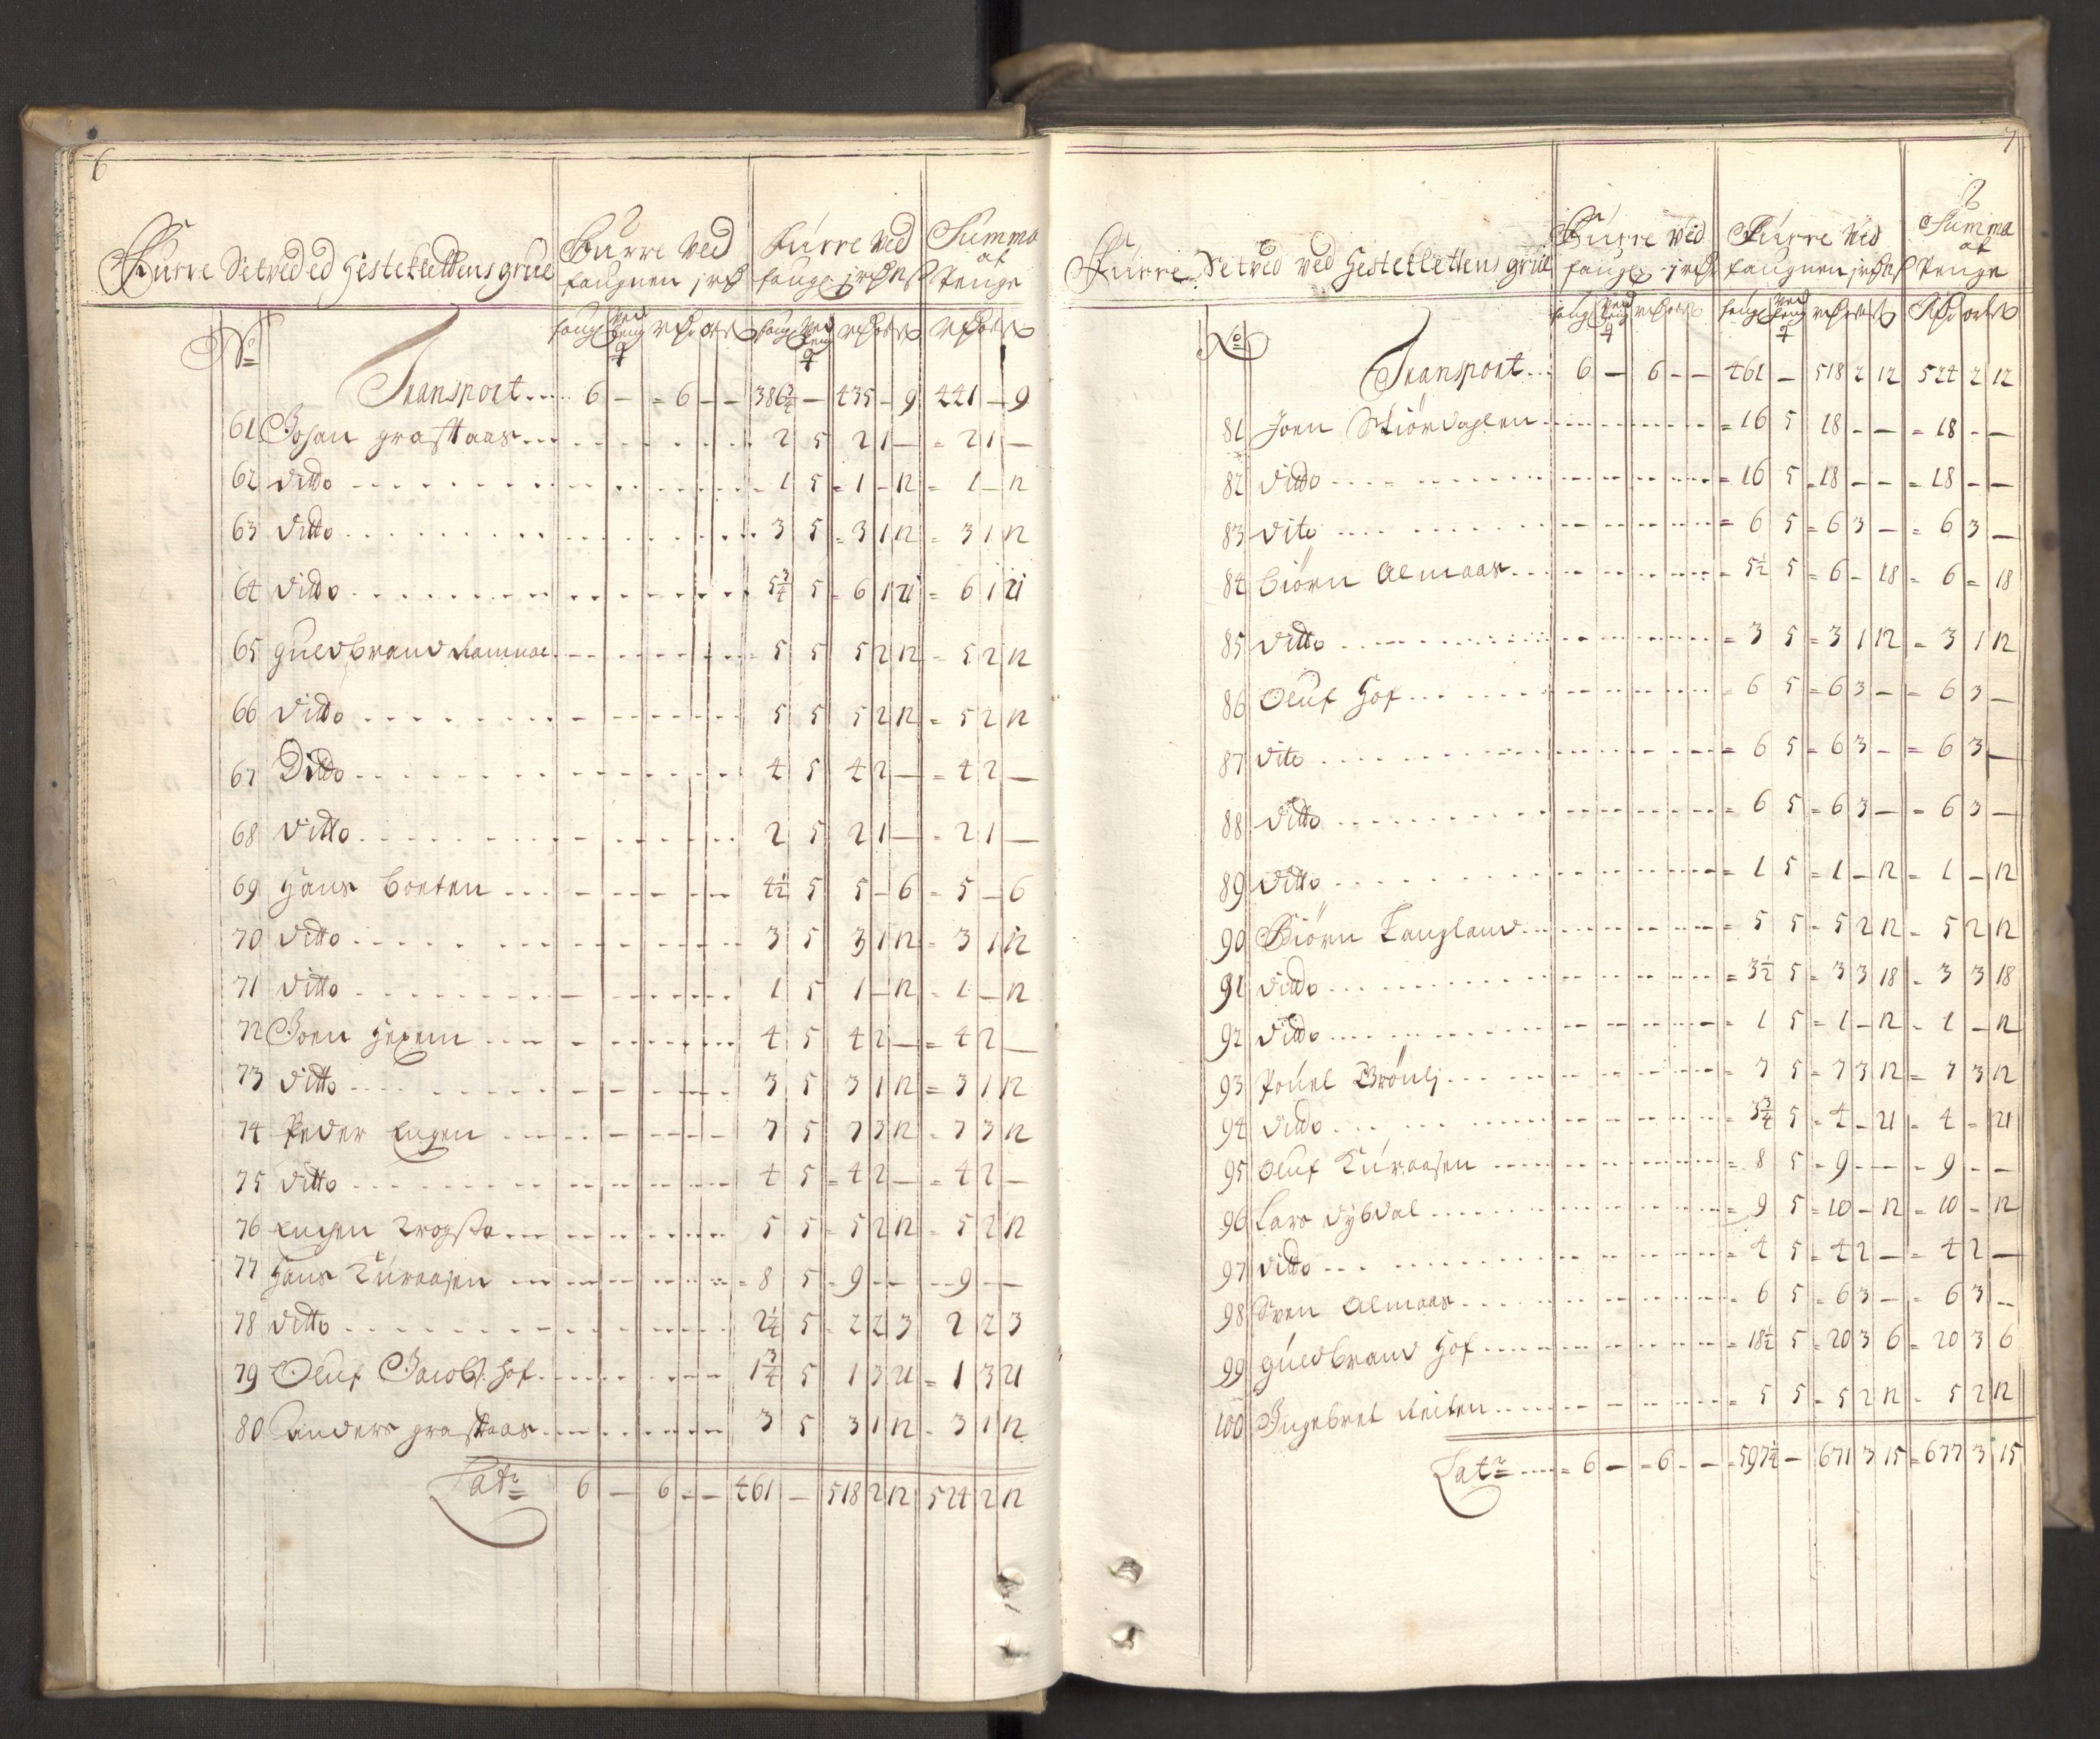 6
Furre Setved ed Gesteklettens grue
Furre Ved faugnen
Furre Ved
Summa af Penge
No
Transport .... 6 — = 6 — — 386 3/4 — 435 — 9 441 — 9
61 Johan grasttaas ... 2 5 2 1 — = 2 1 —
62 ditto - - - 1 5 = 1 — 12 = 1 — 12
63 ditto . . . 3 5 = 3 1 12 = 3 1 12
64 ditto . . . 5 3/4 5 = 6 1 21 = 6 1 21
65 guldbrand . . . 5 5 5 2 12 = 5 2 12
66 ditto . . . 5 5 5 2 12 = 5 2 12
67 Ditto . . . 4 5 4 2 — = 4 2 —
68 ditto . . . 2 5 2 1 — = 2 1 —
69 Hans . . . 4 1/2 5 5 — 6 = 5 — 6
70 ditto . . . 3 5 3 1 12 = 3 1 12
71 ditto . . . 1 5 1 — 12 = 1 — 12
72 Joen Hexem . . . 4 5 4 2 — = 4 2 —
73 ditto . . . 3 5 3 1 12 = 3 1 12
74 Peder Engen . . . 7 5 7 3 12 = 7 3 12
75 ditto . . . 4 5 = 4 2 — = 4 2 —
76 Engen . . . 5 5 = 5 2 12 = 5 2 12
77 Hans Kuraasen . . . = 8 5 = 9 - - - 9 - —
78 ditto . . . 2 1/4 5 = 2 2 3 2 2 3
79 Oluf Jacobs: Hof . . . 1 3/4 5 1 3 21 = 1 3 21
80 Anders grasttaas . . . 3 5 3 1 12 = 3 1 12
Latr 6 — 6 = — 461 — 518 2 12 524 2 12
7
Furre Setved ved Gesteklettens grue
Furre Ved
Furre Ved faugnen
Summa af Penge
No
Transport ... 6 — 6 - - 461 — 518 2 12 524 2 12
81 Joen Stiørdahlen . . . = 16 5 18 - — = 18 - —
82 ditto . . . = 16 5 = 18 - - = 18 - —
83 dito . . . = 6 5 = 6 3 — = 6 3 —
84 Biørn Almaas . . . = 5 1/2 5 = 6 - 18 = 6 = 18
85 ditto . . . = 3 5 = 3 1 12 = 3 1 12
86 Oluf Hof . . . = 6 5 = 6 3 — = 6 3 —
87 dito . . . = 6 5 = 6 3 — = 6 3 —
88 ditto . . . = 6 5 = 6 3 — = 6 3 —
89 ditto . . . = 1 5 = 1 — 12 = 1 — 12
90 Biørn Langland . . . = 5 5 = 5 2 12 = 5 2 12
91 ditto . . . = 3 1/2 5 = 3 3 18 = 3 3 18
92 ditto . . . = 1 5 = 1 — 12 = 1 — 12
93 Pouel . . . = 7 5 = 7 3 12 = 7 3 12
94 ditto . . . = 3 3/4 5 = 4 — 21 = 4 = 21
95 Oluf Kuraasen . . . = 8 5 = 9 - - = 9 - —
96 Lars Dybdal . . . = 9 5 = 10 — 12 = 10 — 12
97 ditto . . . = 4 5 = 4 2 — = 4 2 —
98 Sven Almaas . . . = 6 5 = 6 3 — = 6 3 —
99 guldbrand Hof . . . = 18 1/2 5 = 20 3 6 = 20 3 6
100 Ingebret Reiten . . . = 5 5 = 5 2 12 = 5 2 12
Latr ... = 6 — = 6 - — = 597 1/4 — 671 3 15 = 677 3 15